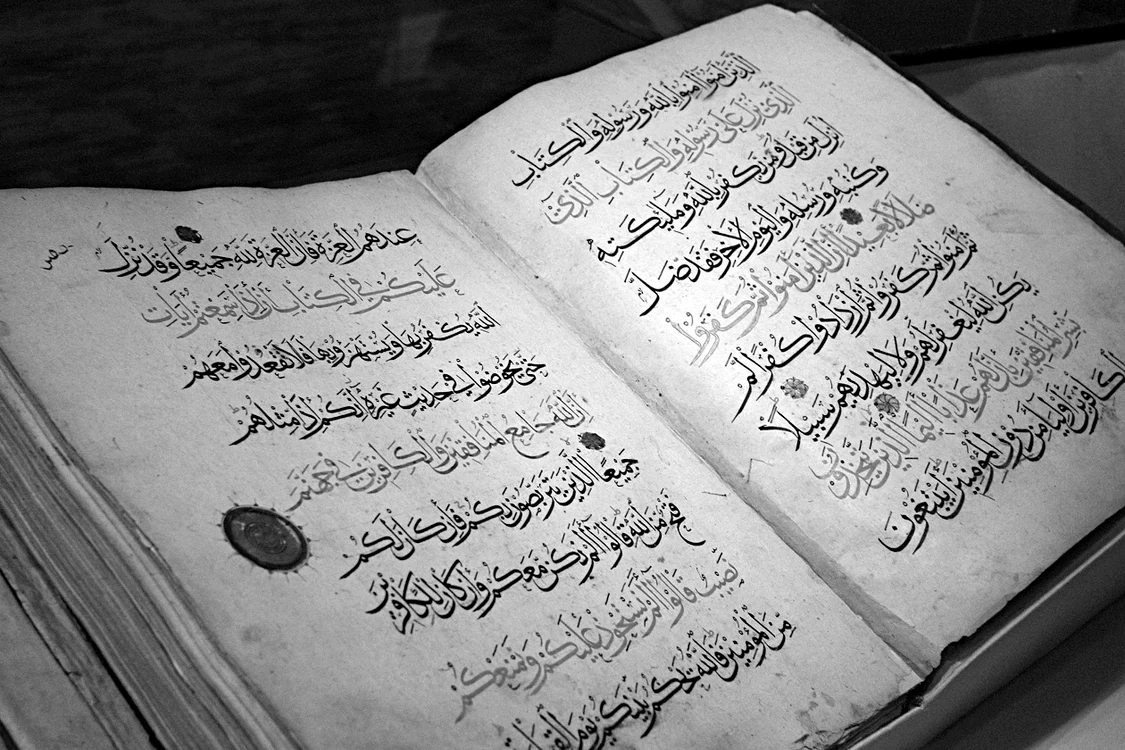 الَّذِينَ آمَنُوا آمِنُوا بِاللَّهِ وَرَسُولِهِ وَالْكِتَابِ
الَّذِي نَزَّلَ عَلَى رَسُولِهِ وَالْكِتَابِ الَّذِي
أَنْزَلَ مِنْ قَبْلُ وَمَنْ يَكْفُرْ بِاللَّهِ وَمَلَائِكَتِهِ
وَكُتُبِهِ وَرُسُلِهِ وَالْيَوْمِ الْآخِرِ فَقَدْ ضَلَّ
ضَلَالًا بَعِيدًا إِنَّ الَّذِينَ آمَنُوا ثُمَّ كَفَرُوا
ثُمَّ آمَنُوا ثُمَّ كَفَرُوا ثُمَّ ازْدَادُوا كُفْرًا لَمْ
يَكُنِ اللَّهُ لِيَغْفِرَ لَهُمْ وَلَا لِيَهْدِيَهُمْ سَبِيلًا
بَشِّرِ الْمُنَافِقِينَ بِأَنَّ لَهُمْ عَذَابًا أَلِيمًا الَّذِينَ يَتَّخِذُونَ
الْكَافِرِينَ أَوْلِيَاءَ مِنْ دُونِ الْمُؤْمِنِينَ أَيَبْتَغُونَ
عِنْدَهُمُ الْعِزَّةَ فَإِنَّ الْعِزَّةَ لِلَّهِ جَمِيعًا وَقَدْ نُزِّلَ
عَلَيْكُمْ فِي الْكِتَابِ أَنْ إِذَا سَمِعْتُمْ آيَاتِ
اللَّهِ يُكْفَرُ بِهَا وَيُسْتَهْزَأُ بِهَا فَلَا تَقْعُدُوا مَعَهُمْ
حَتَّى يَخُوضُوا فِي حَدِيثٍ غَيْرِهِ إِنَّكُمْ إِذًا مِثْلُهُمْ
إِنَّ اللَّهَ جَامِعُ الْمُنَافِقِينَ وَالْكَافِرِينَ فِي جَهَنَّمَ
جَمِيعًا الَّذِينَ يَتَرَبَّصُونَ بِكُمْ فَإِنْ كَانَ لَكُمْ
فَتْحٌ مِنَ اللَّهِ قَالُوا أَلَمْ نَكُنْ مَعَكُمْ وَإِنْ كَانَ لِلْكَافِرِينَ
نَصِيبٌ قَالُوا أَلَمْ نَسْتَحْوِذْ عَلَيْكُمْ وَنَمْنَعْكُمْ
مِنَ الْمُؤْمِنِينَ فَاللَّهُ يَحْكُمُ بَيْنَكُمْ يَوْمَ الْقِيَامَةِ